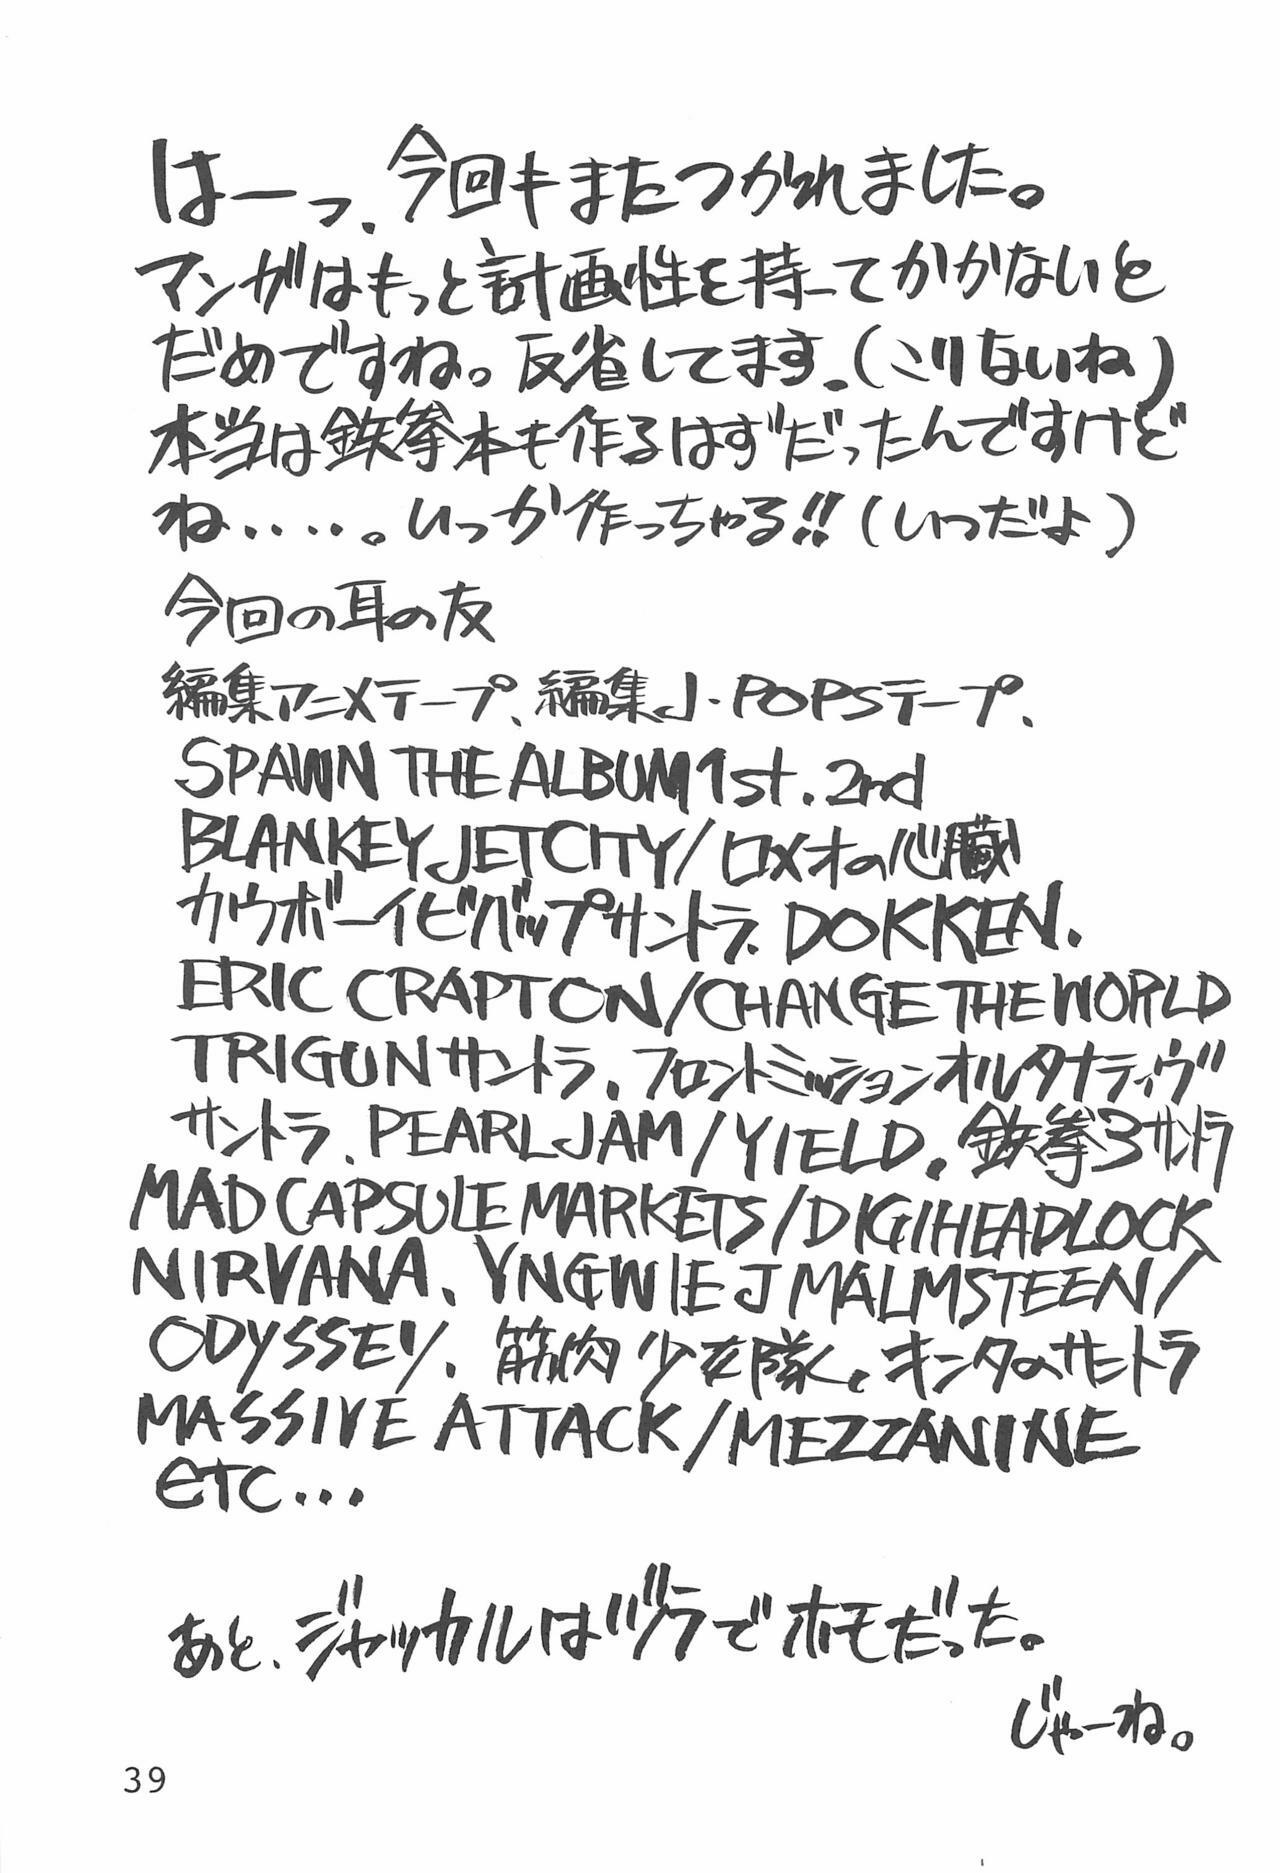 はーっ、今回もまたつかれました。
マンガはもっと計画性を持ってかかないと
だめですね。反省してます。(こりないね)
本当は鉄拳本も作るはずだったんですけど
ね‥‥。いつか作っちゃる!!(いつだよ)
今回の耳の友
編集アニメテープ、編集J・POPSテープ、
SPAWN THE ALBUM 1st. 2nd
BLANKEY JET CITY/ロメオの心臓
カウボーイビバップサントラ、DOKKEN.
ERIC CRAPTON/CHANGE THE WORLD
TRIGUNサントラ、フロントミッションオルタナティヴ
サントラ、PEARL JAM/YIELD、鉄拳3サントラ
MAD CAPSULE MARKETS/DIGIHEADLOCK
NIRVANA、YNGWIE J MALMSTEEN/
ODYSSEY、筋肉少女隊、キンタのサントラ
MASSIVE ATTACK/MEZZANINE
etc...
あと、ジャッカルはヅラでホモだった。
じゃーね。
39